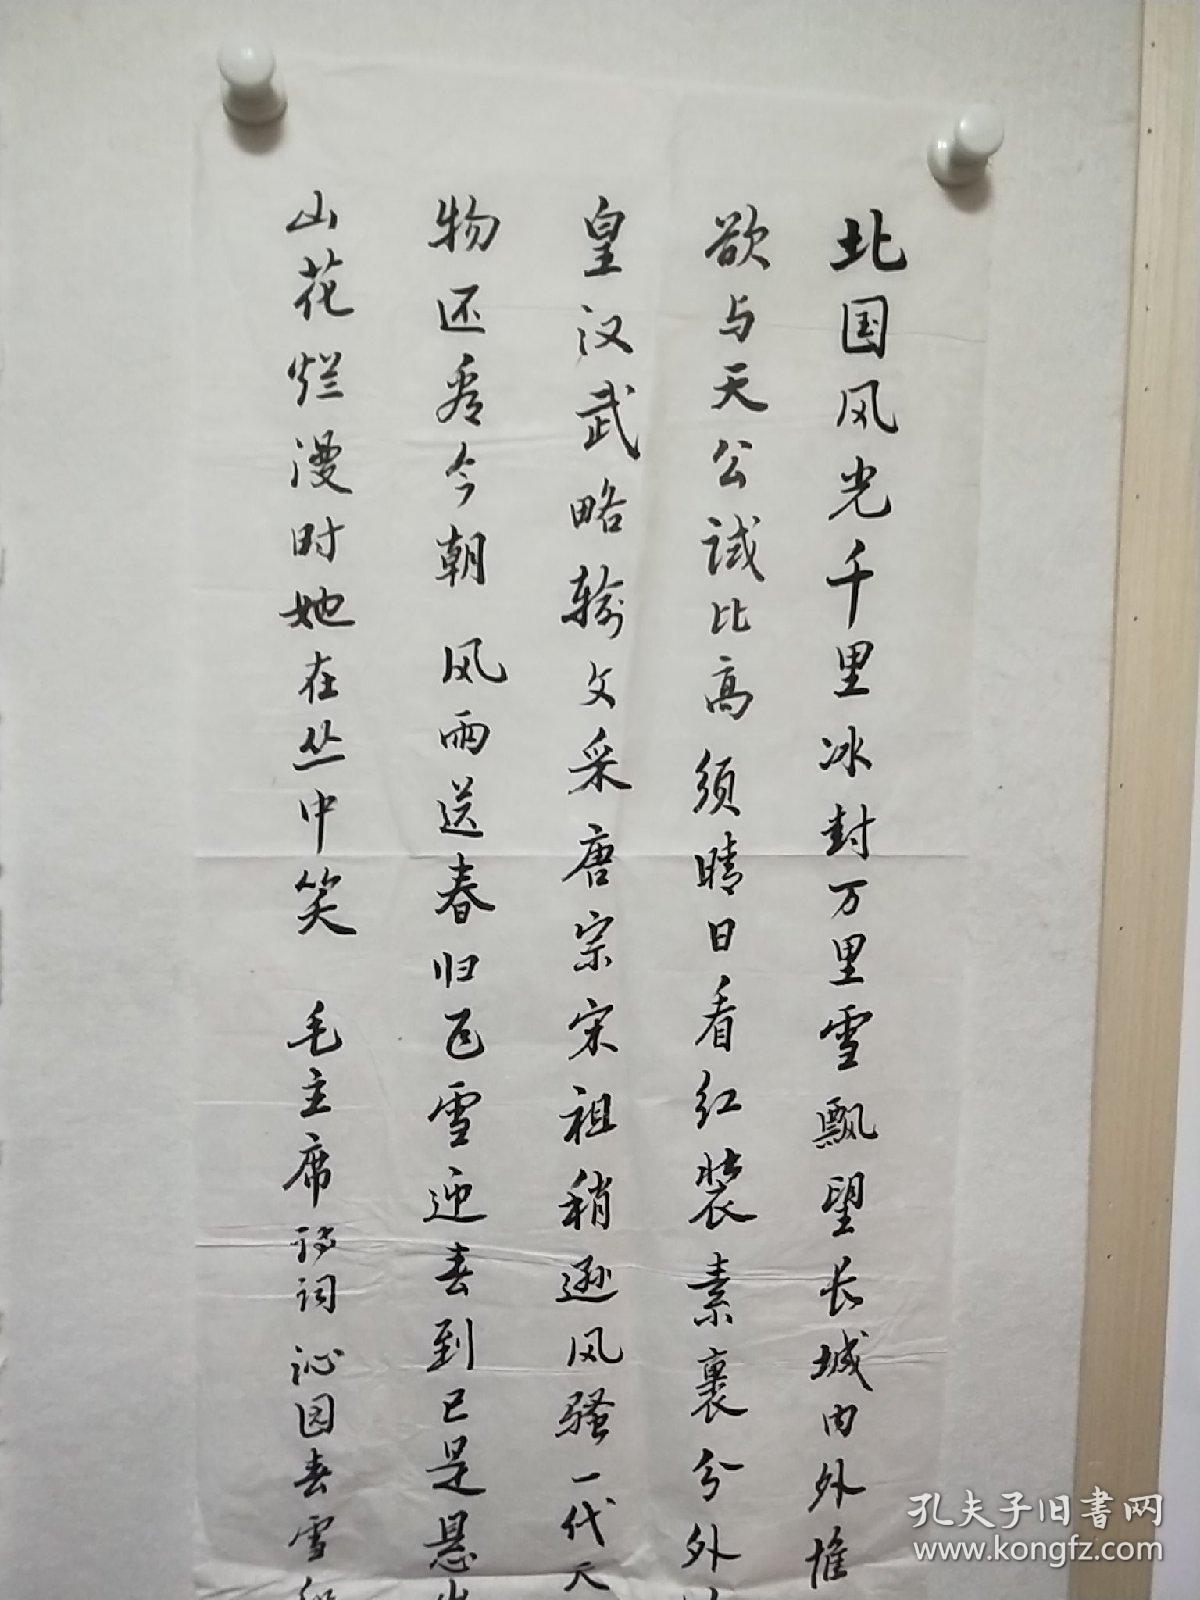 北国风光千里冰封万里雪飘望长城内外惟
欲与天公试比高须晴日看红装素裹分外
皇汉武略输文采唐宗宋祖稍逊风骚一代天
物还看今朝风雨送春归飞雪迎春到已是悬
山花烂漫时她在丛中笑 毛主席诗词沁园春雪
孔夫子旧书网
www.kongfz.com